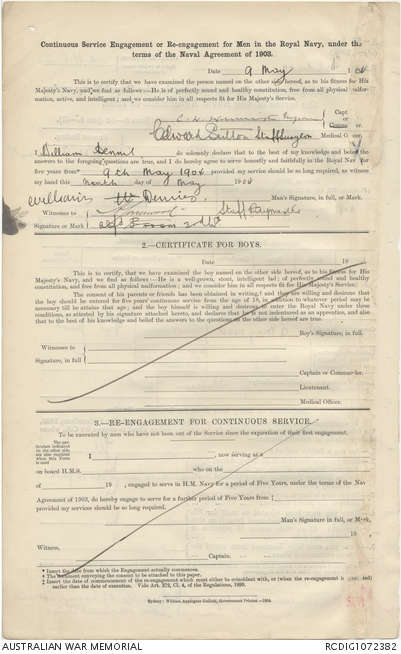 Continuous Service Engagement or Re-engagement for Men in the Royal Navy, under the
terms of the Naval Agreement of 1903.
Date 9 May 190
This is to certify that we have examined the person named on the other side hereof, as to his fitness for His
Majesty's Navy, and we find as follows:—He is of perfectly sound and healthy constitution, free from all physical malformation,
active, and intelligent; and we consider him in all respects fit for His Majesty's Service.
Capt
or
Edward Sutton Staff Surgeon Medical O
I William Dennis do solemnly declare that to the best of my knowledge and belief the
answers to the foregoing questions are true, and I do hereby agree to serve honestly and faithfully in the Royal Navy for
five years from* 9th May 1904 provided my service should be so long required, as witness
my hand this Ninth day of May 1904
William W Dennis Man's Signature in full, or Mark.
Witnesses to
Signature or Mark
2.—CERTIFICATE FOR BOYS.
Date 19
This is to certify, that we have examined the boy named on the other side hereof, as to his fitness for His
Majesty's Navy, and we find as follows:—He is a well-grown, stout, intelligent lad; of perfectly sound and healthy
constitution, and free from all physical malformation; and we consider him in all respects fit for His Majesty's Service;
The consent of his parents or friends has been obtained in writing,† and they are willing and desirous that
the boy should be entered for five years' continuous service from the age of 18, in addition to whatever period may be
necessary till he attains that age; and the boy himself is willing and desirous to enter the Royal Navy under these
conditions, as attested by his signature attached hereto, and declares that he is not indentured as an apprentice, and also
that to the best of his knowledge and belief the answers to the questions on the other side hereof are true.
Boy's Signature, in full.
Witnesses to
Signature, in full
Captain or Commander.
Lieutenant.
Medical Officer.
3.—RE-ENGAGEMENT FOR CONTINUOUS SERVICE
To be executed by men who have not been out of the Service since the expiration of their first engagement.
I , now serving as a
on board H.M.S. who on the
of 19 , engaged to serve in H.M. Navy for a period of Five Years, under the terms of the Naval
Agreement of 1903, do hereby engage to serve for a further period of Five Years from‡
provided my services should be so long required.
Man's Signature in full, or Mark.
19
Witness,
Captain.
* Insert the date from which the Engagement actually commences.
† The document conveying the consent to be attached to this paper.
Sydney: William Applegate Gullick, Government Printer.—1904.
AUSTRALIAN WAR MEMORIAL
RCDIG1072382